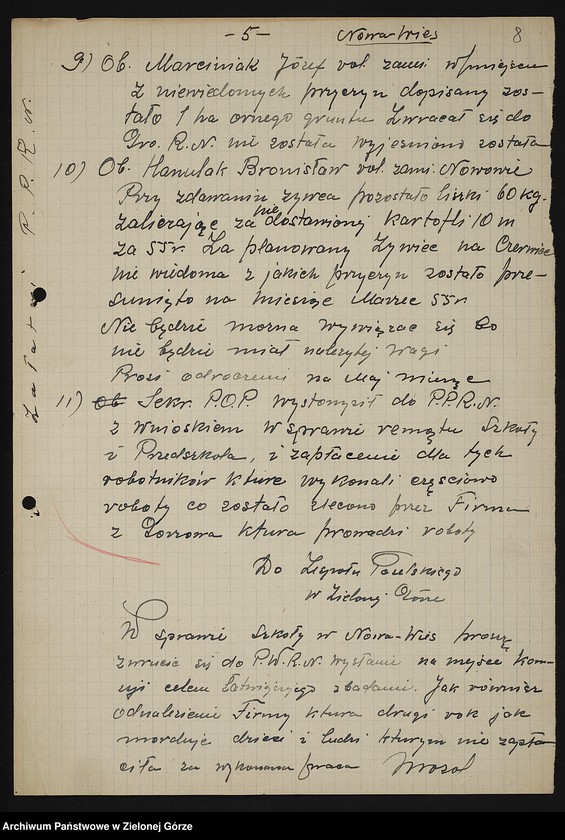 -5-
Nowa-Wieś
8
9) Ob. Marciniak Józef vol. zami. w/miejscu
z niewiedomych przyczyn dopisany zos-
tało 1 ha ornego gruntu Zwracał się do
Gro. R.N. nie została wyjesniono została
10) Ob. Hanulak Bronisław vol. zami. Nowowie
Przy zdawaniu zywca pozostało liszki 60 kg.
zalierające za nie dostawionej kartofli 10 m
za 55r. Za planowany Zywiec na Czerwiec
nie wiedoma z jakich przyczyn zostało prze-
sunięto na miesiąc Marzec 55r
Nie będzie mozna wywiązac się bo
nie będzie miał nalezytej wagi
Prosi odroczenie na Maj miesiąc
11) Ob Sekr. P.O.P. wystompił do P.P.R.N.
z wnioskiem w sprawie remątu Szkoły
i Przedszkola, i zapłacenie dla tych
robotników kture wykonali częsciowo
roboty co zostało zlecono przez Firma
z Gorzowa ktura prowadzi roboty
Do Zespołu Poselskiego
w Zielonej Górze
W sprawie szkoły w Nowa-Wieś proszę
zwrucić się do P.W.R.N. wysłanie na miejsce kom-
isji celem zbadanie. Jak równierz
odnalezienie Firmy ktura drugi rok jak
morduje dzieci i ludzi kturym nie zapła-
ciła za wykonana praca
Załat P. P. R. N.
Archiwum Państwowe w Zielonej Górze